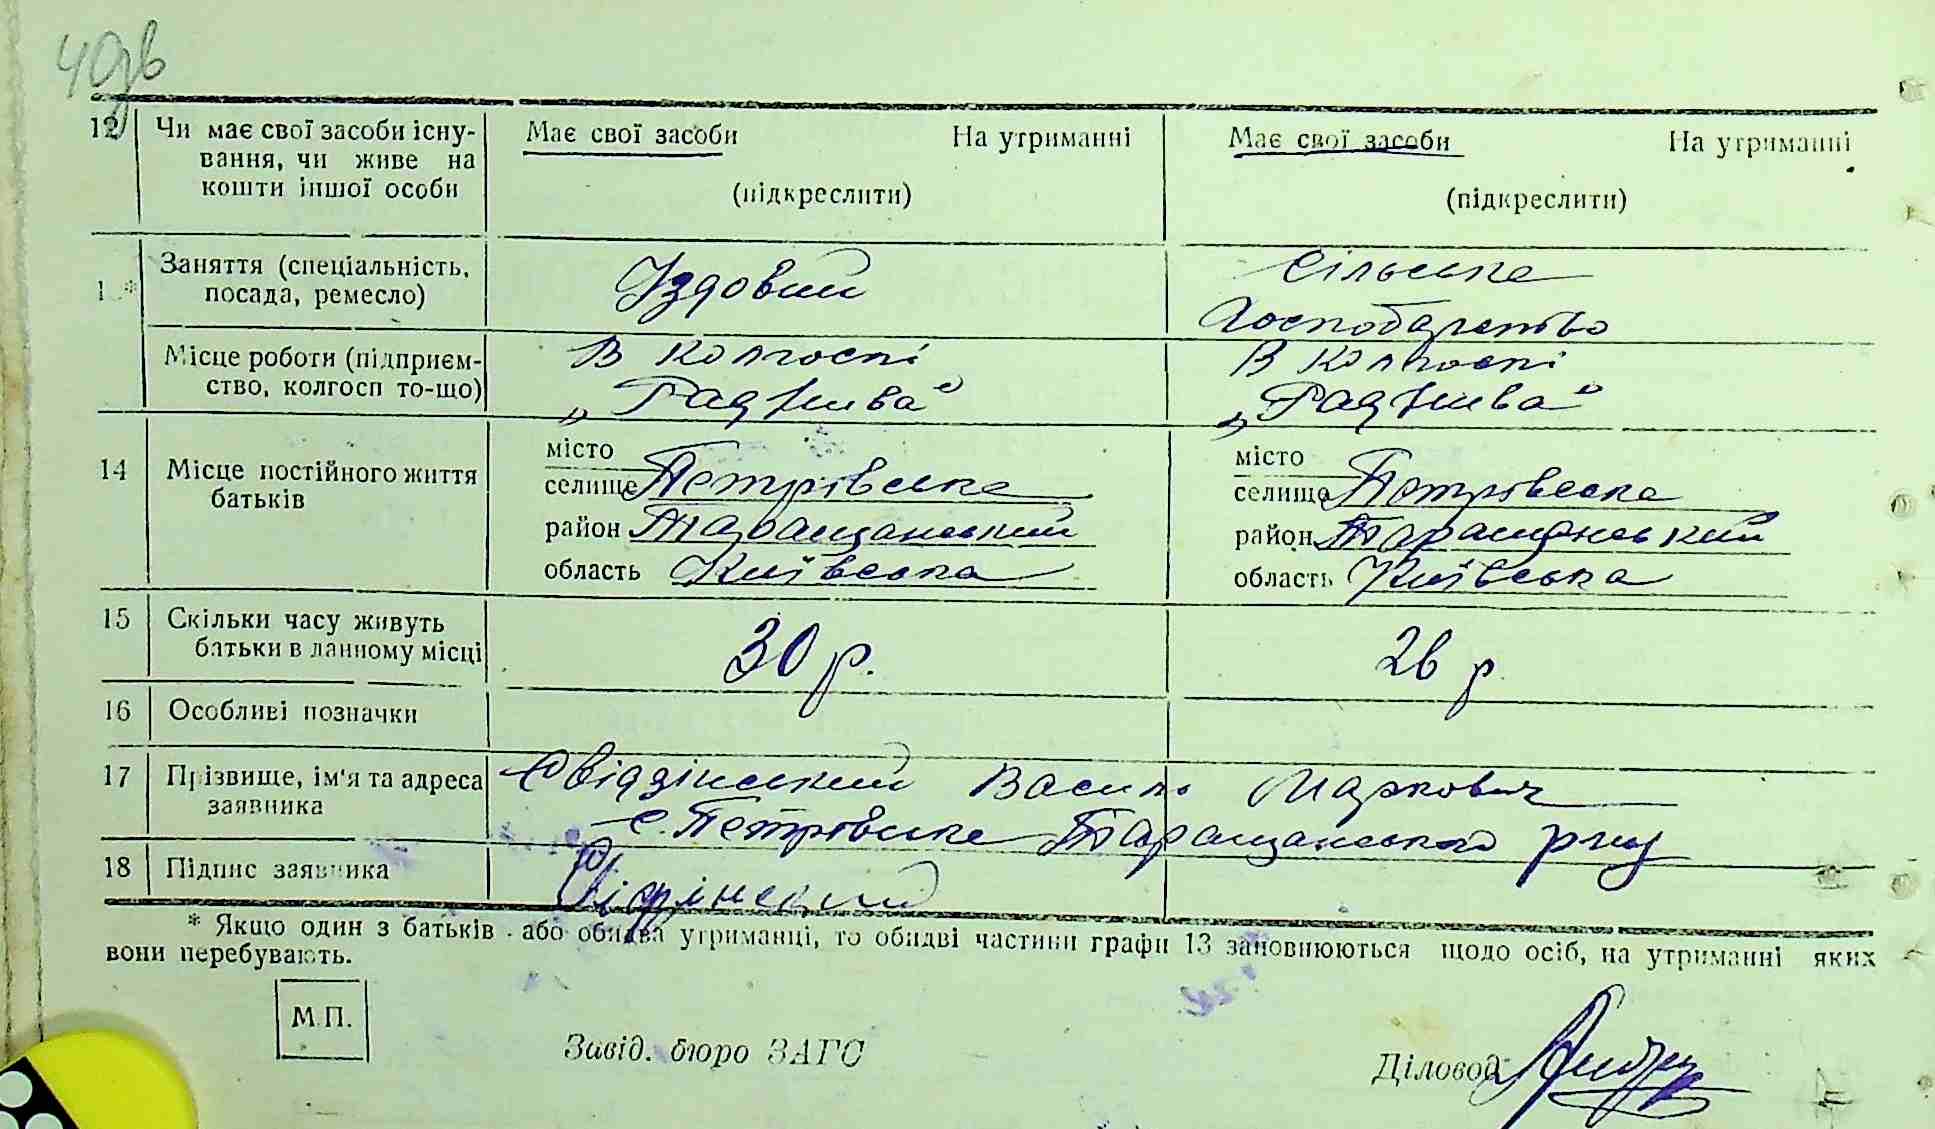 40зв
12 Чи має свої засоби існу- Має свої засоби На утриманні Має свої засоби На утриманні
вання, чи живе на
кошти іншої особи (підкреслити) (підкреслити)
Заняття (спеціальність, Їздовий Сільське
1 * посада, ремесло) Господарство
Місце роботи (підприєм- В колгоспі В колгоспі
ство, колгосп то-що) „Рад Нива" „Рад Нива"
місто місто
14 Місце постійного життя селище Петрівське селище Петрівське
батьків район Таращанський район Таращанський
область Київська область Київська
15 Скільки часу живуть 30 р. 26 р
батьки в данному місці
16 Особливі позначки
17 Прізвище, ім'я та адреса Свідзінський Василь Маркович
заявника с. Петрівське Таращанського р-ну
18 Підпис заявника Свідзінський
* Якщо один з батьків або обидва утриманці, то обидві частини графи 13 заповнюються щодо осіб, на утриманні яких
вони перебувають.
М.П.
Завід. бюро ЗАГС
Діловод